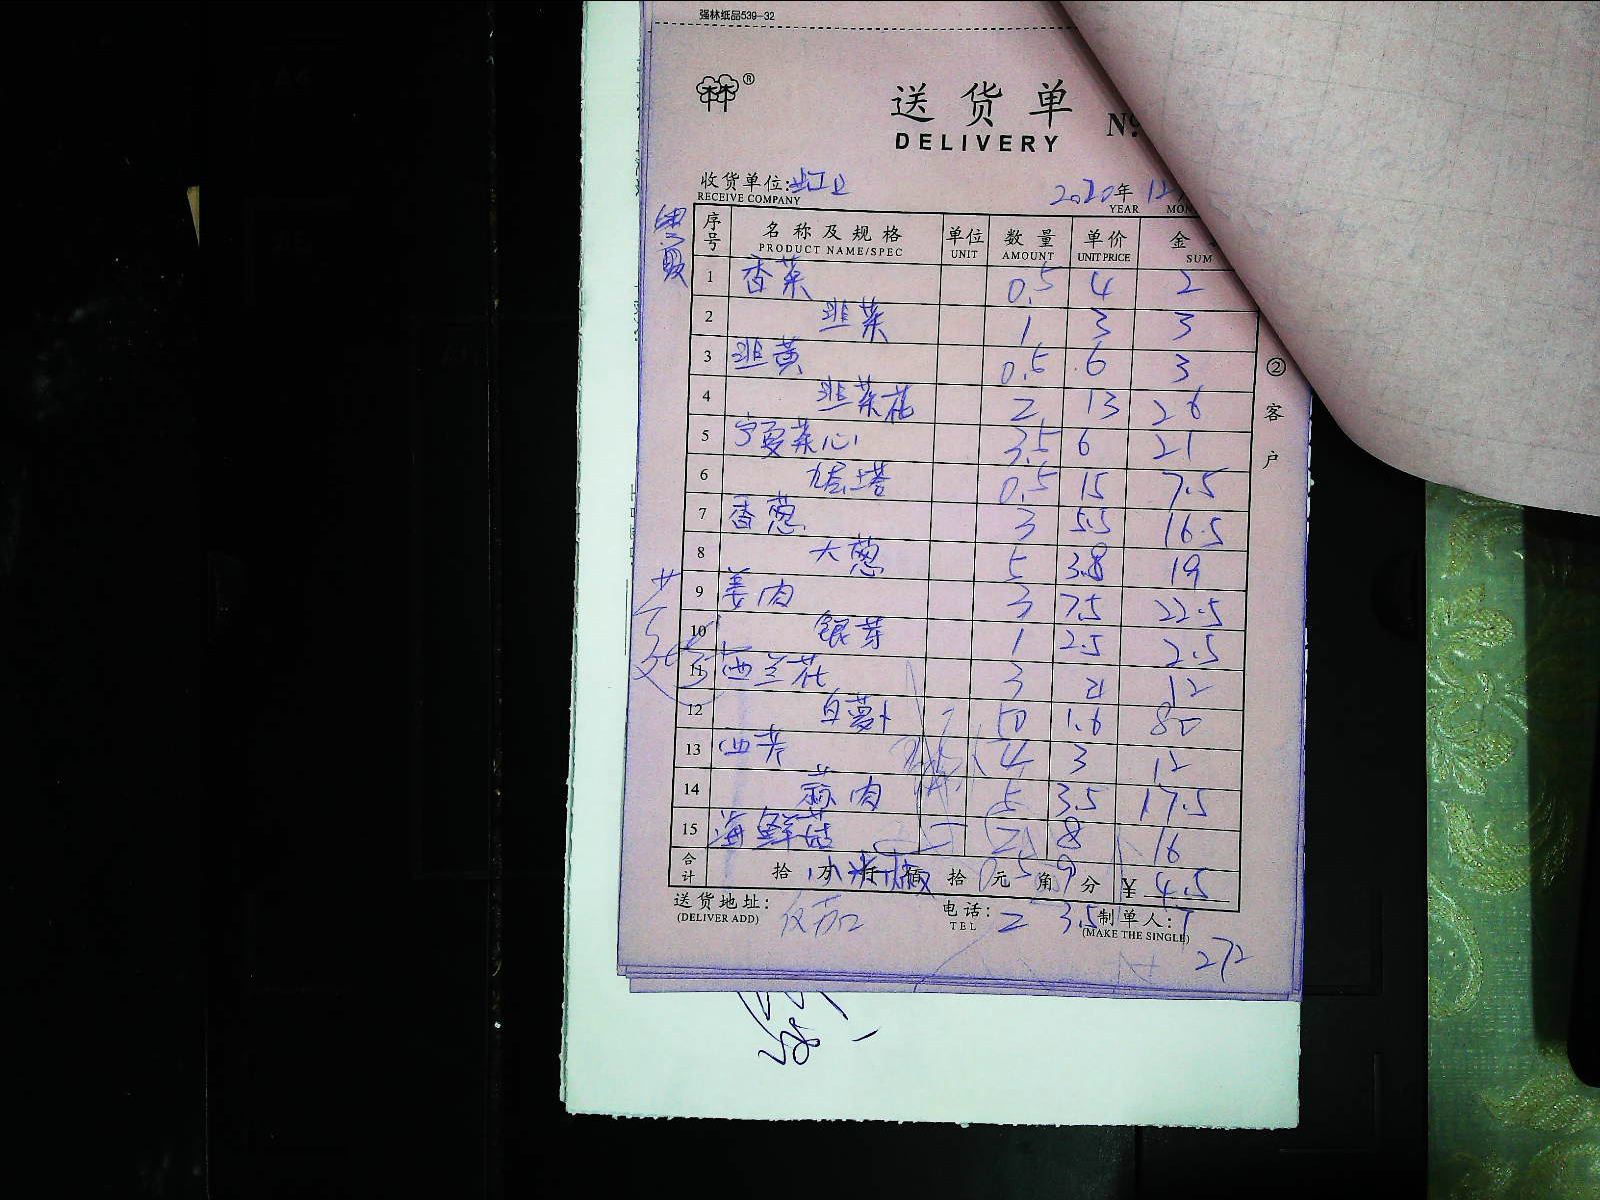 强林纸品539-32
送货单
DELIVERY
№
收货单位: 2020年 12
RECEIVE COMPANY YEAR
序号 名称及规格 单位 数量 单价 金
PRODUCT NAME/SPEC UNIT AMOUNT UNIT PRICE SUM
1 香菜 0.5 4 2
2 韭菜 1 3 3
3 韭黄 0.5 6 3
4 韭菜花 2 13 26
5 宁夏菜心 3.5 6 21
6 塔 0.5 15 7.5
7 香葱 3 5.5 16.5
8 大葱 5 3.8 19
9 姜肉 3 7.5 22.5
10 银芽 1 2.5 2.5
11 西兰花 3 4 12
12 白萝卜 50 1.6 80
13 西芹 4 3 12
14 蒜肉 5 3.5 17.5
15 海鲜菇 2 8 16
合计 拾 万 仟 佰 拾 元 角 分 ¥ 4.5
小米椒 0.5 9
送货地址: 电话: 2 3.5 制单人: 7
(DELIVER ADD) TEL (MAKE THE SINGLE)
272
② 客户